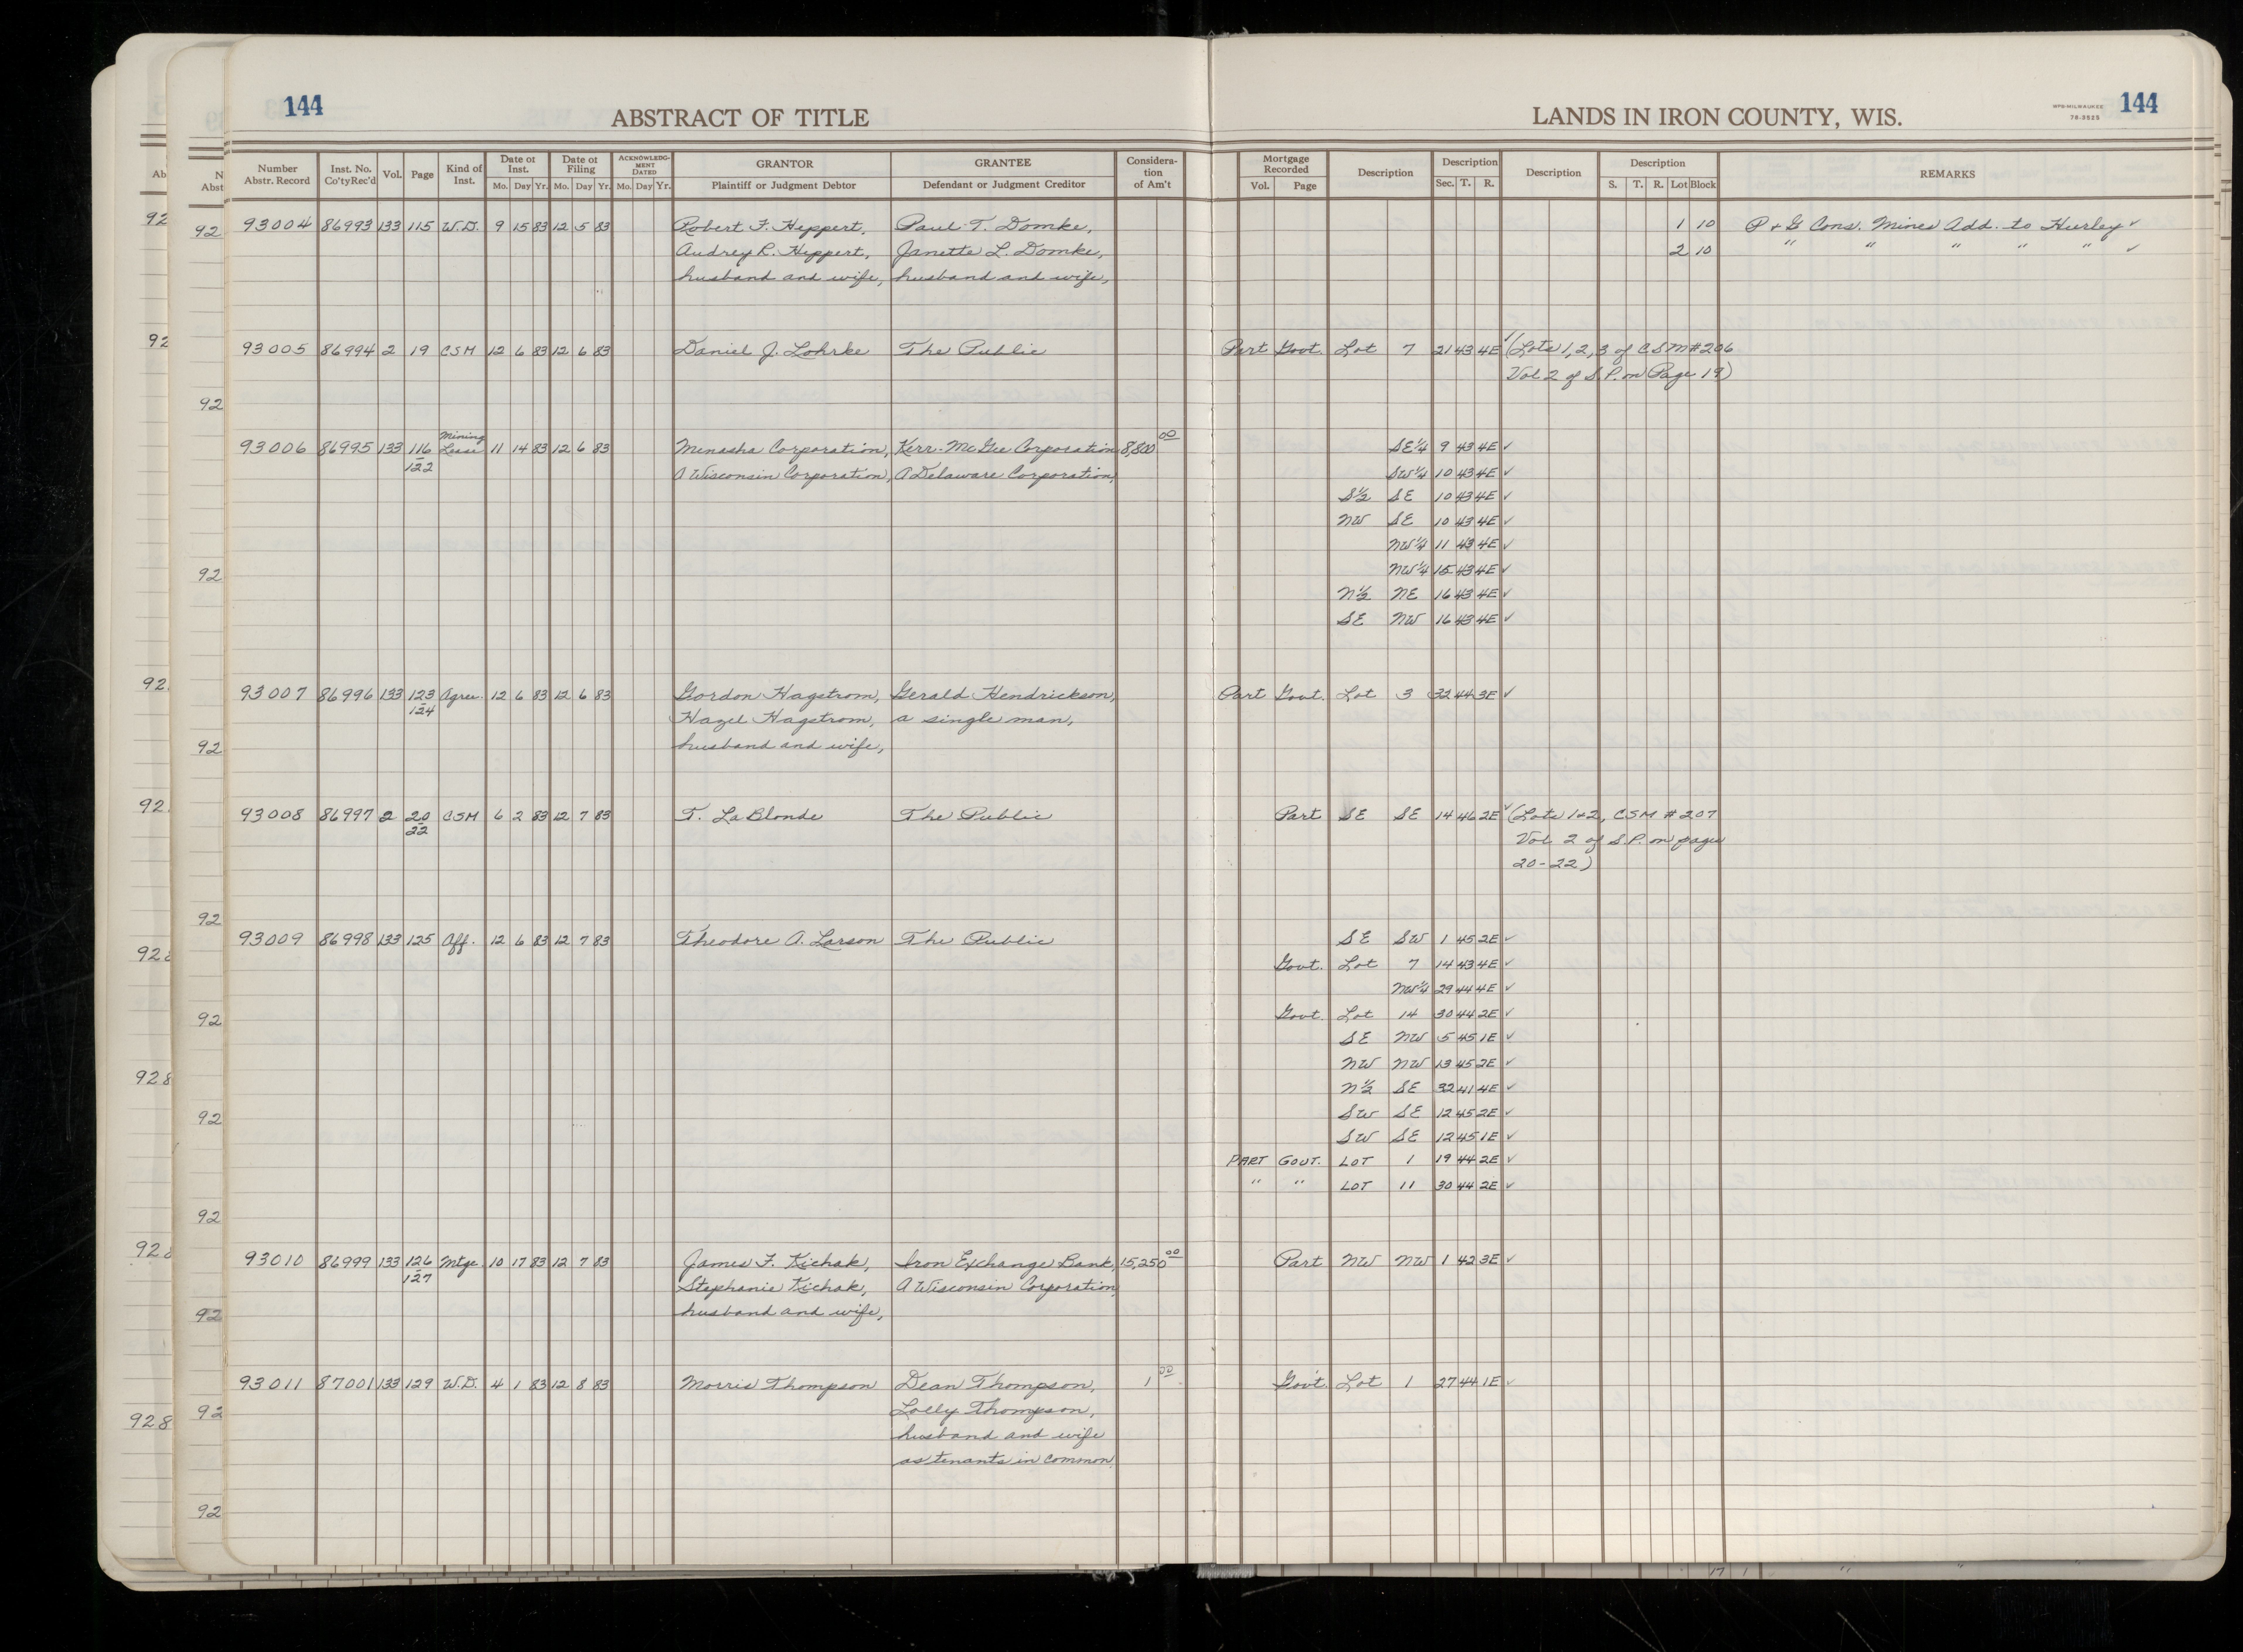 144 ABSTRACT OF TITLE
LANDS IN IRON COUNTY, WIS. 144
Number Abstr. Record Inst. No. Co'ty Rec'd Vol. Page Kind of Inst. Date of Inst. Mo. Day Yr. Date of Filing Mo. Day Yr. ACKNOWLEDGMENT DATED Mo. Day Yr. GRANTOR Plaintiff or Judgment Debtor GRANTEE Defendant or Judgment Creditor Consideration of Am't
Mortgage Recorded Vol. Page Description Description Sec. T. R. Description Description S. T. R. Lot Block REMARKS
93004 86993 133 115 W.D. 9 15 83 12 5 83 Robert F. Heppert, Paul T. Domke, 1 10 P & G Cons. Mines Add. to Hurley ✓
Audrey R. Heppert, Janette L. Domke, 2 10 " " " " " ✓
husband and wife, husband and wife,
93005 86994 2 19 CSM 12 6 83 12 6 83 Daniel J. Lohrke The Public Part Govt. Lot 7 21 43 4E ✓ (Lots 1, 2, 3 of CSM #206
Vol 2 of S.P. on Page 19)
93006 86995 133 116 Mining Lease 11 14 83 12 6 83 Menasha Corporation, Kerr-McGee Corporation 8,800 00 SE¼ 9 43 4E ✓
122 A Wisconsin Corporation, A Delaware Corporation, SW¼ 10 43 4E ✓
S½ SE 10 43 4E ✓
NW SE 10 43 4E ✓
NW¼ 11 43 4E ✓
NW¼ 15 43 4E ✓
N½ NE 16 43 4E ✓
SE NW 16 43 4E ✓
93007 86996 133 123 Agree. 12 6 83 12 6 83 Gordon Hagstrom, Gerald Hendrickson, Part Govt. Lot 3 32 44 3E ✓
124 Hazel Hagstrom, a single man,
husband and wife,
93008 86997 2 20 CSM 6 2 83 12 7 83 T. LaBlonde The Public Part SE SE 14 46 2E ✓ (Lots 1+2, CSM #207
22 Vol 2 of S.P. on pages
20-22)
93009 86998 133 125 Aff. 12 6 83 12 7 83 Theodore A. Larson The Public SE SW 1 45 2E ✓
Govt. Lot 7 14 43 4E ✓
NW¼ 29 44 4E ✓
Govt. Lot 14 30 44 2E ✓
SE NW 5 45 1E ✓
NW NW 13 45 2E ✓
N½ SE 32 41 4E ✓
SW SE 12 45 2E ✓
SW SE 12 45 1E ✓
PART GOVT. LOT 1 19 44 2E ✓
" " LOT 11 30 44 2E ✓
93010 86999 133 126 Mtge 10 17 83 12 7 83 James F. Kichak, Iron Exchange Bank, 15,250 00 Part NW NW 1 42 3E ✓
127 Stephanie Kichak, A Wisconsin Corporation,
husband and wife,
93011 87001 133 129 W.D. 4 1 83 12 8 83 Morris Thompson Dean Thompson, 1 00 Govt. Lot 1 27 44 1E ✓
Lolly Thompson,
husband and wife
as tenants in common.